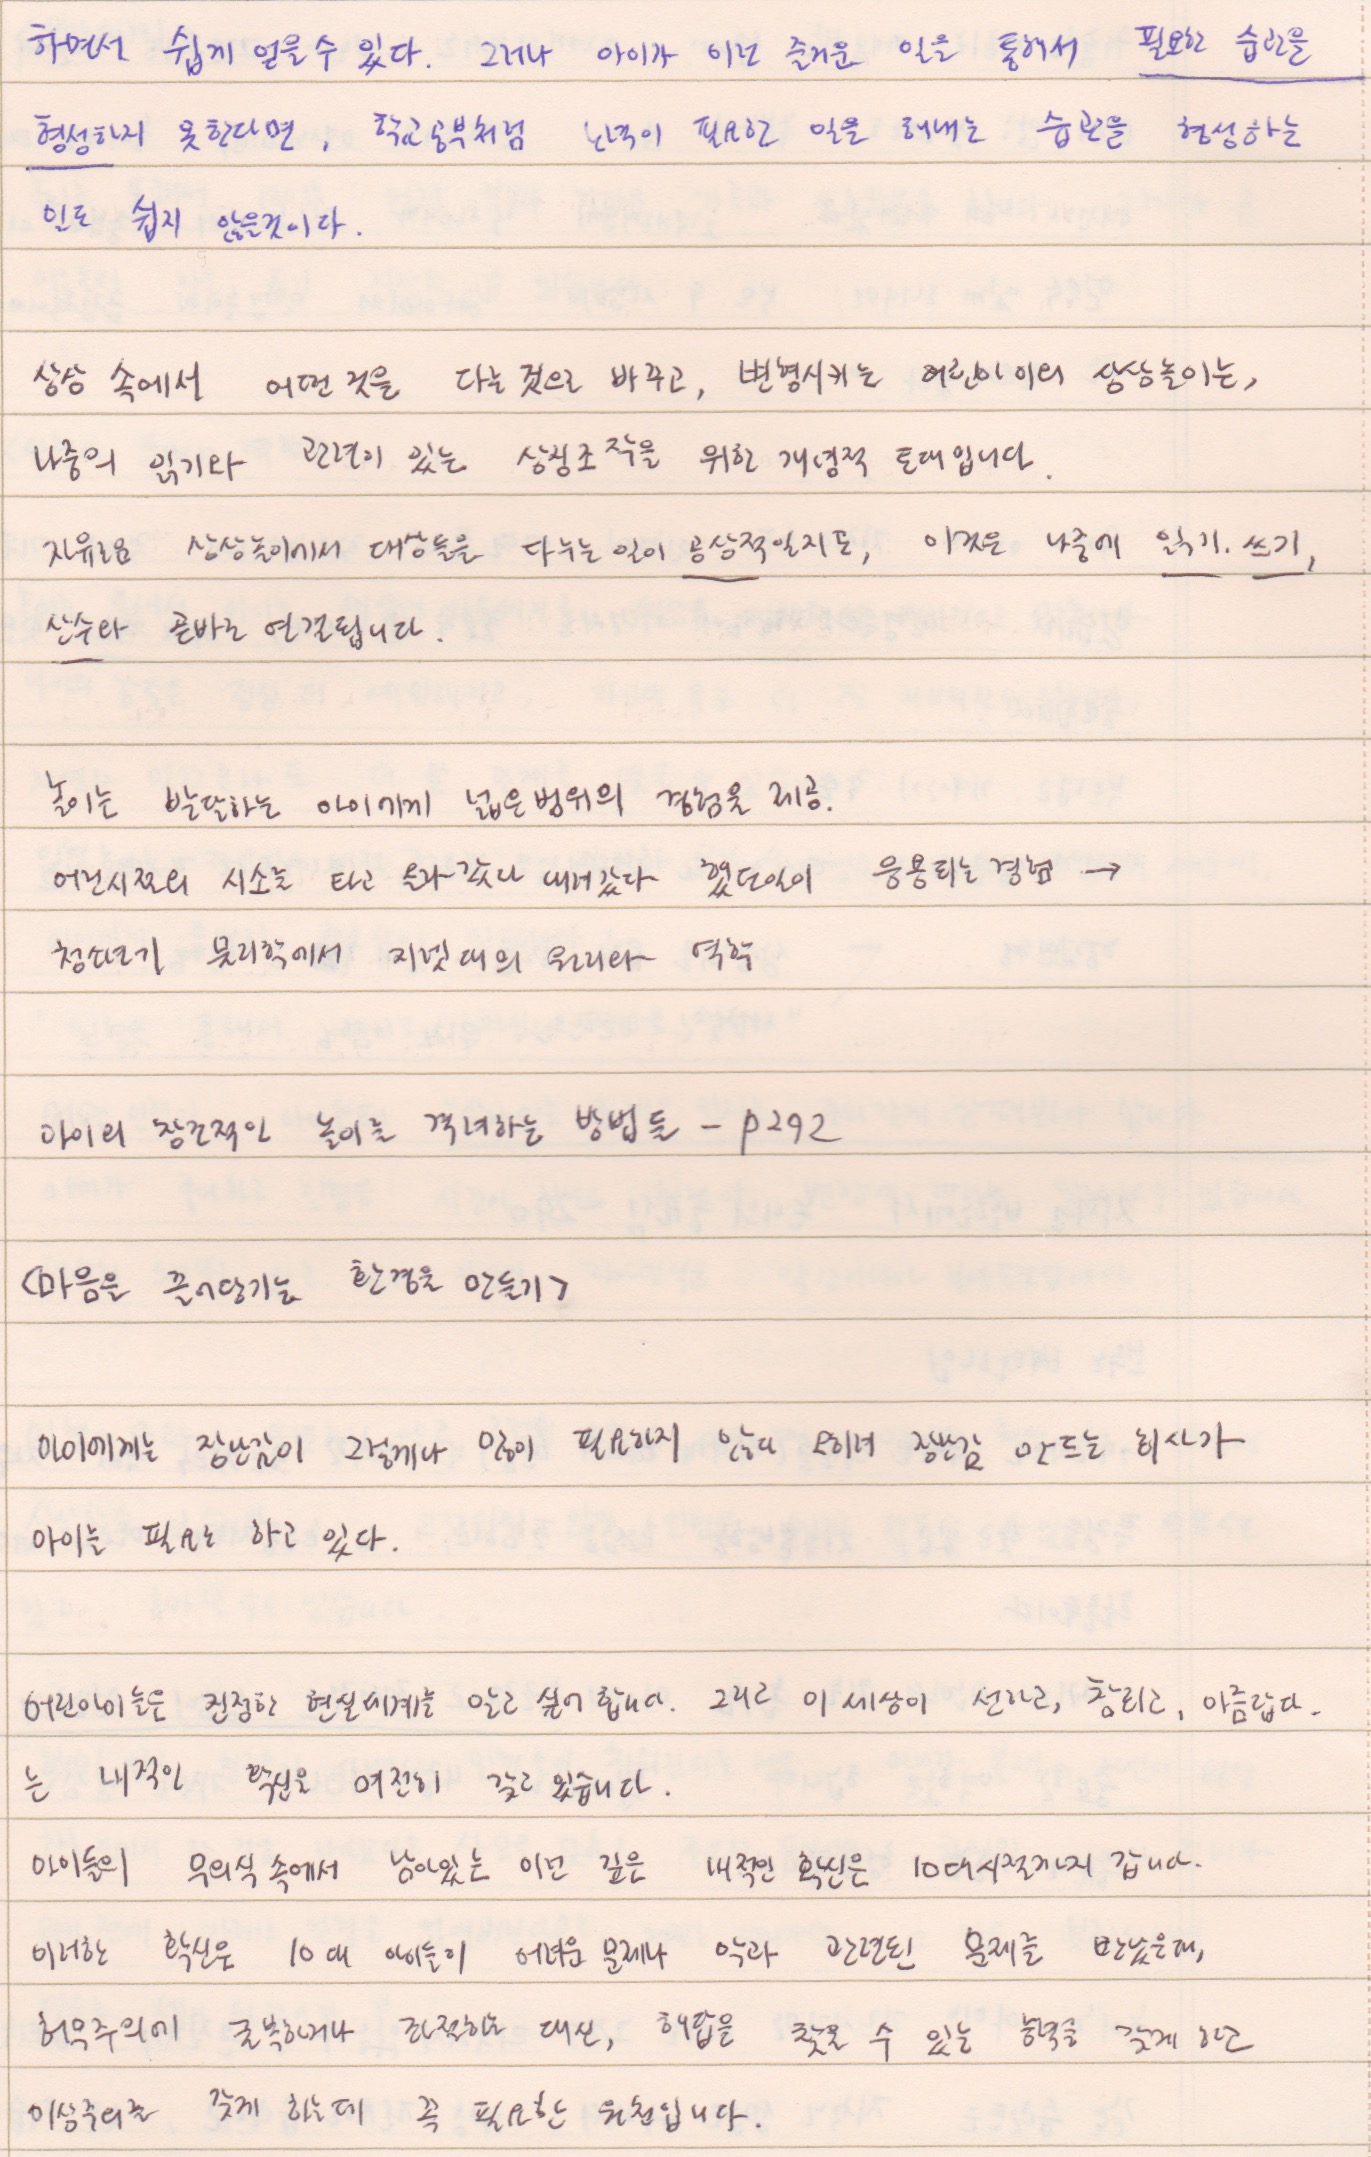 하면서 쉽게 얻을 수 있다. 그러나 아이가 이런 즐거운 일을 통해서 필요한 습관을
형성하지 못한다면, 학교공부처럼 노력이 필요한 일을 해내는 습관을 형성하는
일도 쉽지 않을것이다.
상상 속에서 어떤 것을 다른 것으로 바꾸고, 변형시키는 어린아이의 상상놀이는,
나중의 읽기와 관련이 있는 상징조작을 위한 개념적 토대입니다.
자유로운 상상놀이에서 대상들을 다루는 일이 공상적일지도, 이것은 나중에 읽기. 쓰기,
산수와 곧바로 연결됩니다.
놀이는 발달하는 아이에게 넓은 범위의 경험을 제공.
어린시절의 시소를 타고 올라갔다 내려갔다 했던일이 응용되는 경험 →
청소년기 물리학에서 지렛대의 원리와 역학
아이의 창조적인 놀이를 격려하는 방법들 - p292
<마음을 끌어당기는 환경을 만들기>
아이에게는 장난감이 그렇게나 많이 필요하지 않다 오히려 장난감 만드는 회사가
아이를 필요로 하고 있다.
어린아이들은 진정한 현실세계를 알고 싶어 합니다. 그리고 이 세상이 선하고, 참되고, 아름답다.
는 내적인 확신을 여전히 갖고 있습니다.
아이들의 무의식 속에서 남아있는 이런 깊은 내적인 확신은 10대시절까지 갑니다.
이러한 확신은 10대 아이들이 어려운 문제나 악과 관련된 문제를 만났을때,
허무주의에 굴복하거나 좌절하는 대신, 해답을 찾을 수 있는 힘을 갖게 하고
이상주의를 갖게 하는데 꼭 필요한 원천입니다.